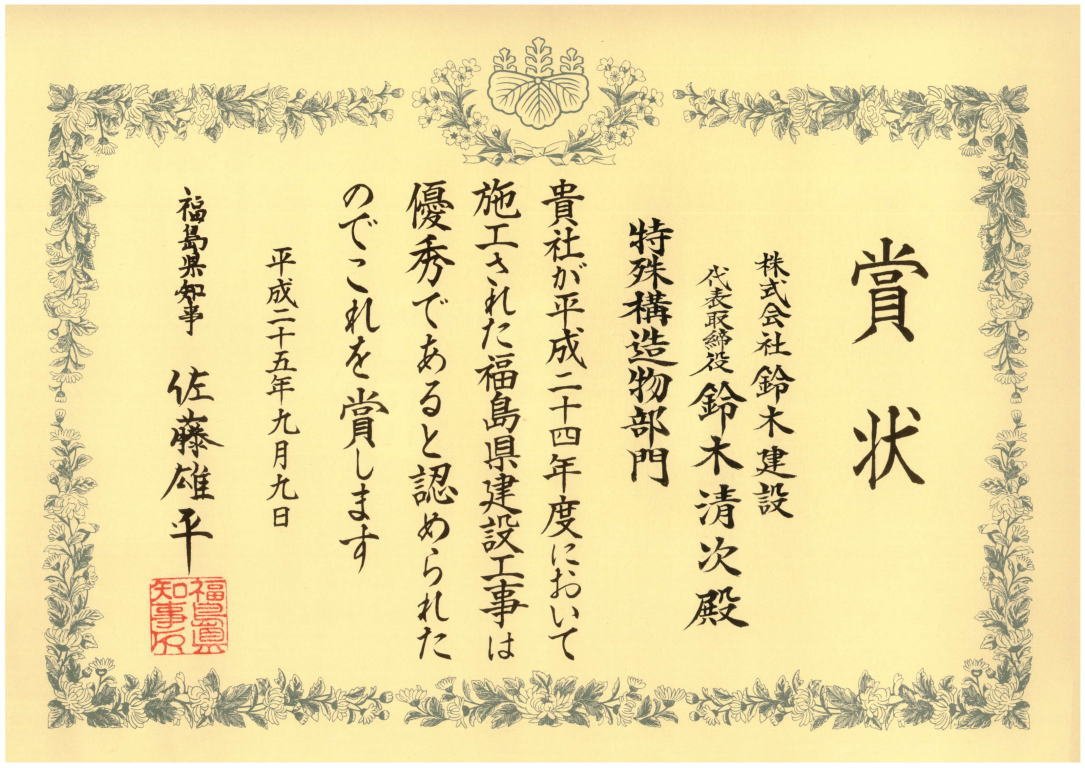 賞状
株式会社鈴木建設
代表取締役鈴木清次殿
特殊構造物部門
貴社が平成二十四年度において
施工された福島県建設工事は
優秀であると認められた
のでこれを賞します
平成二十五年九月九日
福島県知事 佐藤雄平
福島縣知事印